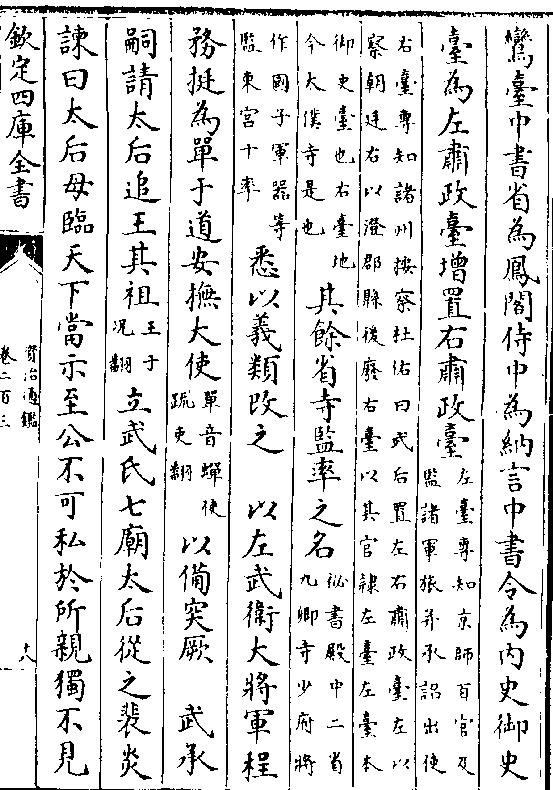 鸞臺中書省為鳳閣侍中為納言中書令為内史御史
臺為左肅政臺增置右肅政臺左臺專知京師百官及監諸軍旅并承詔出使
右臺專知諸州按察杜佑曰武后置左右肅政臺左以
察朝廷右以澄郡縣後廢右臺以其官隷左臺左臺本
御史臺也右臺地
今太僕寺是也其餘省寺監率之名祕書殿中二省九卿寺少府將
作國子軍器等
監東宮十率悉以義類改之　以左武衛大將軍程
務挺為單于道安撫大使單音蟬使疏吏翻以備突厥　武承
嗣請太后追王其祖王于况翻立武氏七廟太后從之裴炎
諫曰太后母臨天下當示至公不可私於所親獨不見
欽定四庫全書
資治通鑑
卷二百三
十八